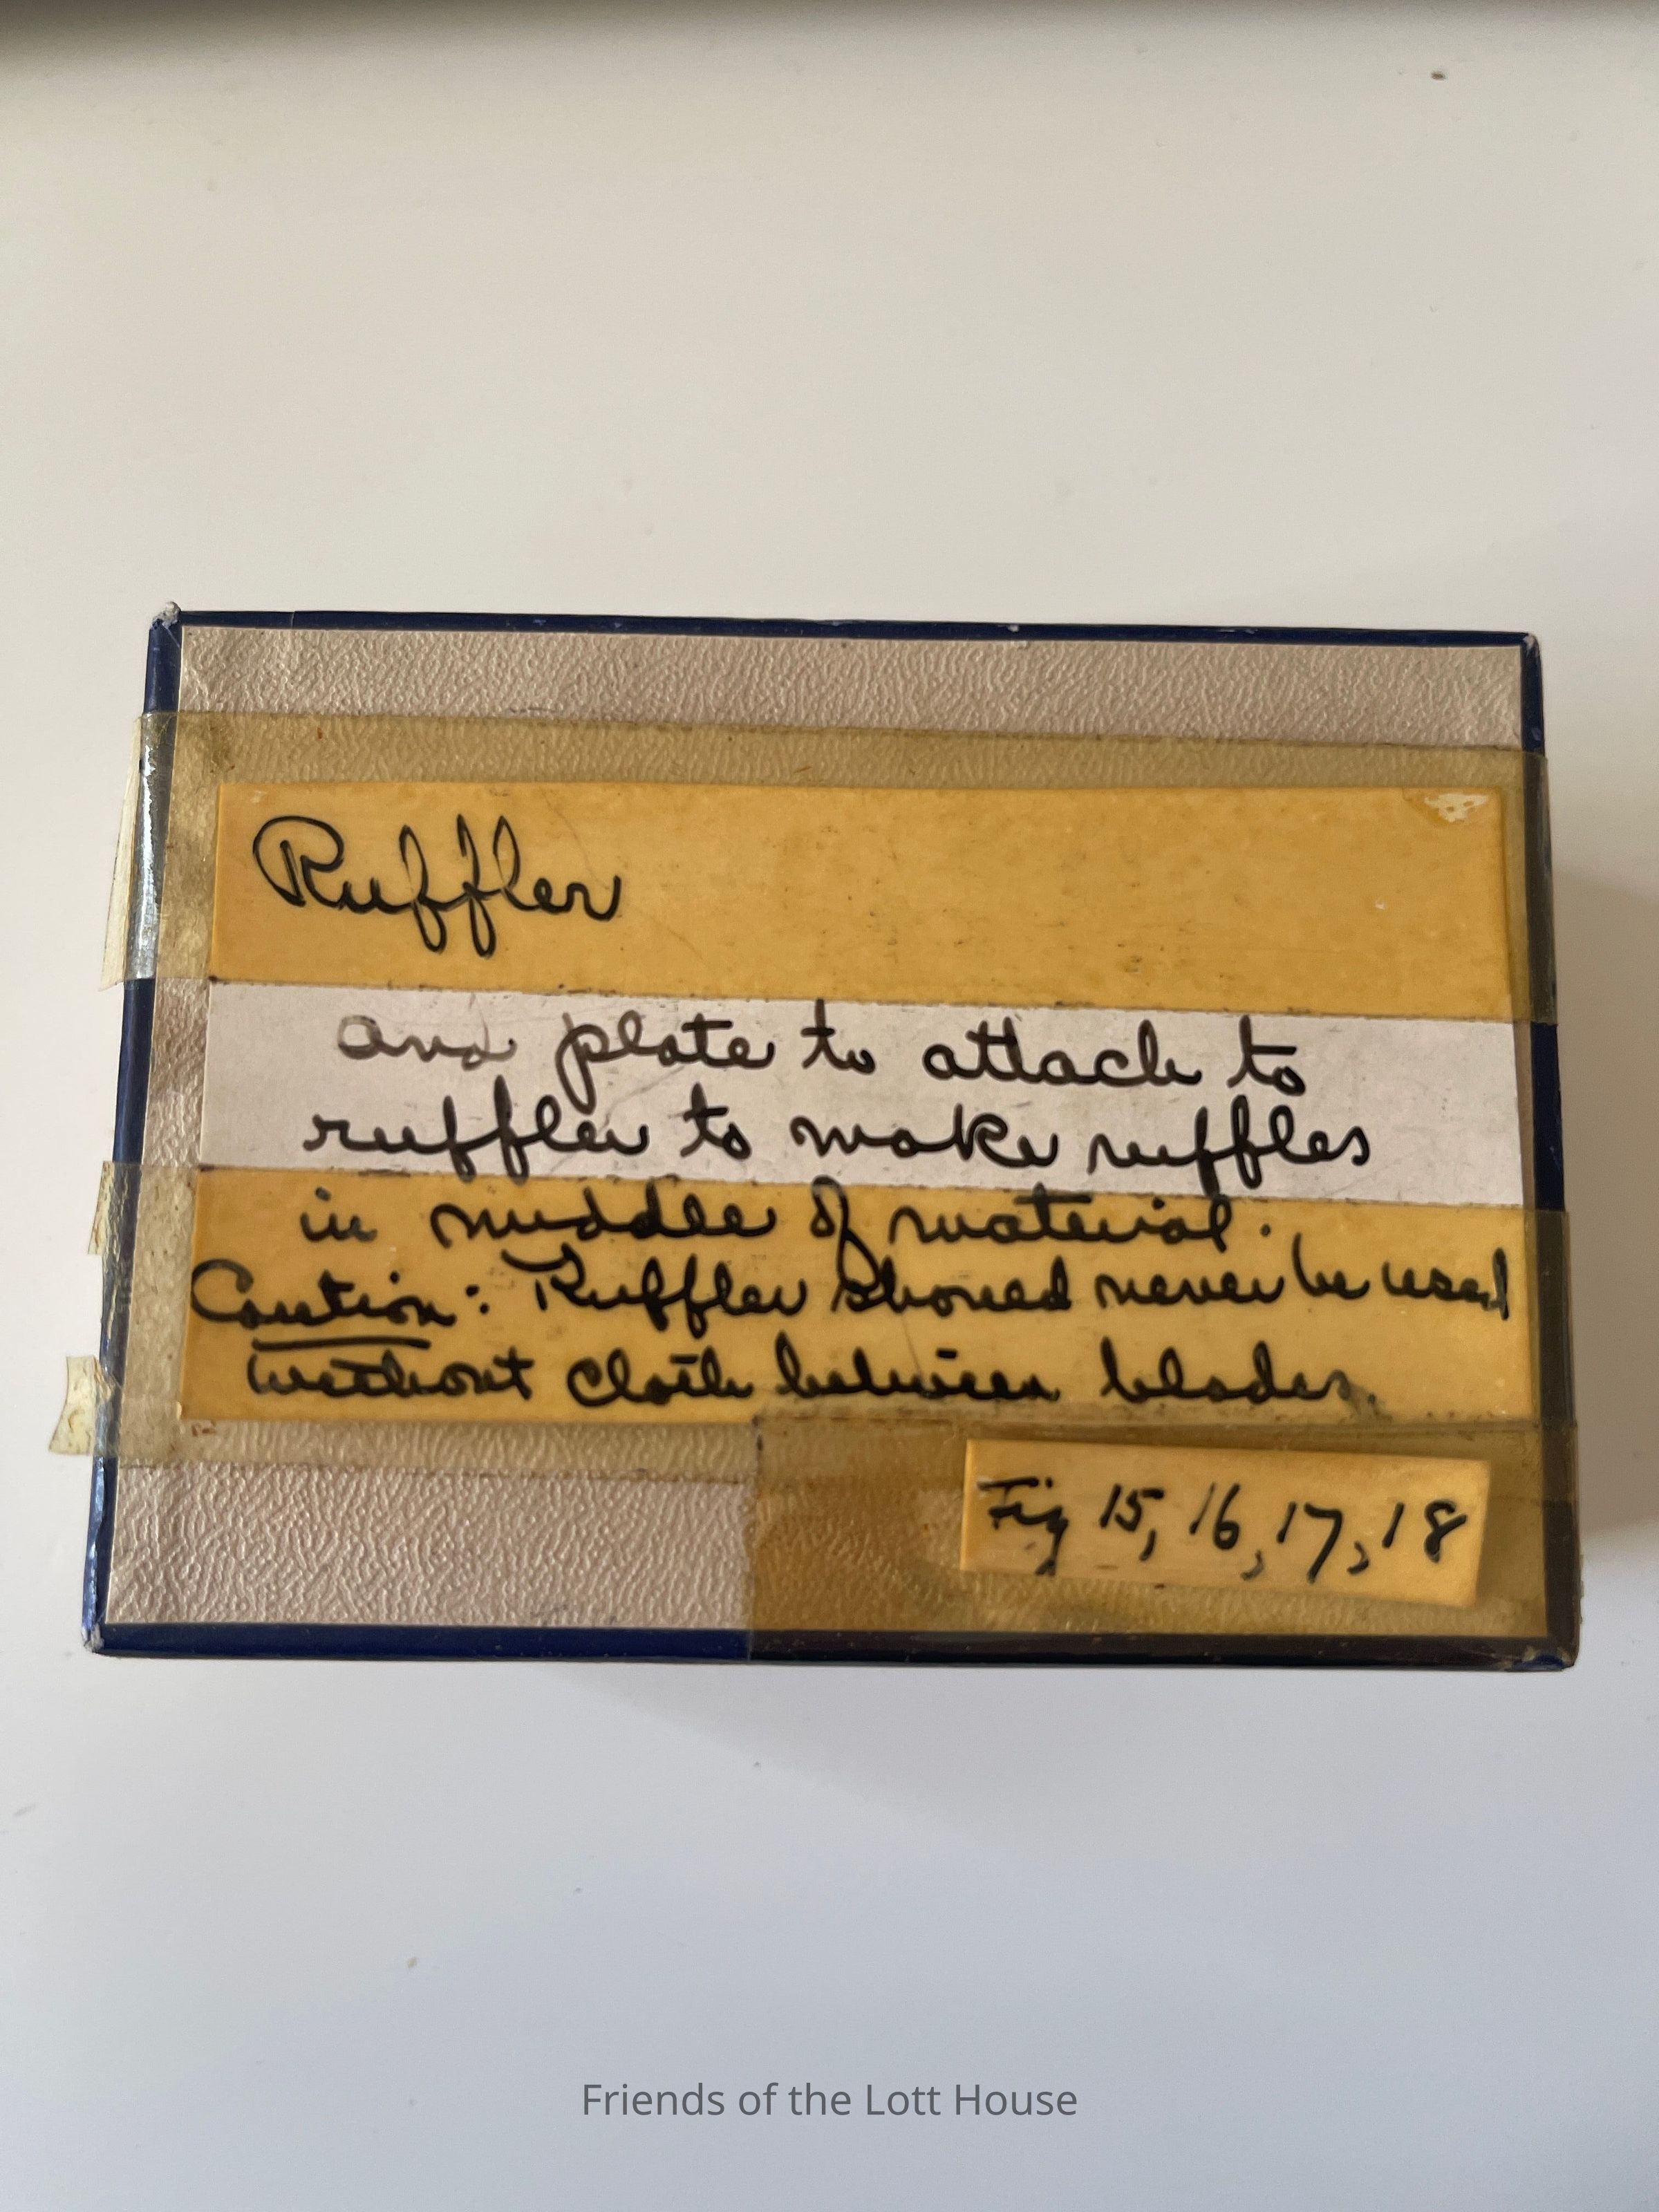 Ruffler
and plate to attach to
ruffler to make ruffles
in middle of material.
Caution: Ruffler should never be used
without cloth between blades.
Fig 15, 16, 17, 18
Friends of the Lott House